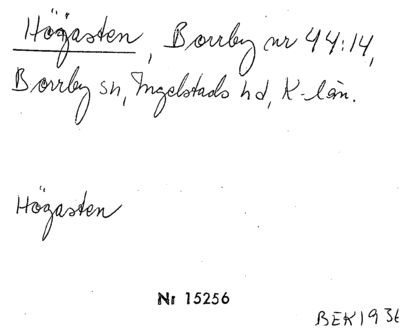 Högasten, Borrby nr 44:14,
Borrby sn, Ingelstads hd, K-län.
Högasten
Nr 15256
BEK1936